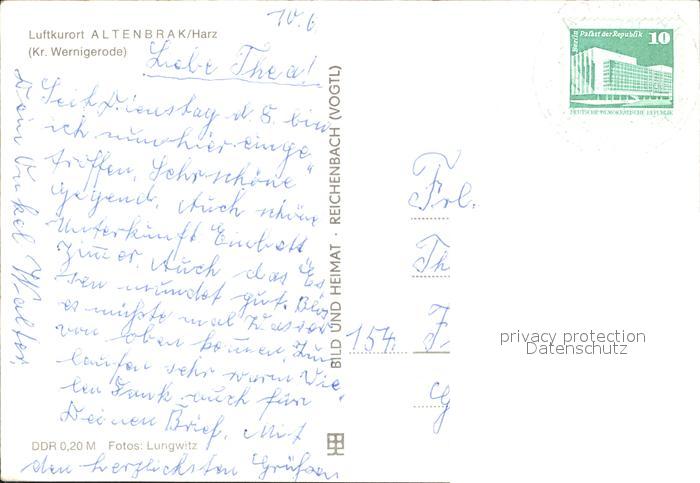 Luftkurort ALTENBRAK/Harz
(Kr. Wernigerode)
10.6
Liebe Thea!
Seit Dienstag d. 8. bin
ich nun hier einge
troffen. Sehr schöne
Gegend. Auch schöne
Unterkunft Einbett
Zimmer. Auch das Es
sen mundet gut. Blos
es müßte mal Wasser
von oben kommen. Zum
laufen sehr warm. Vie
len Dank auch für
Deinen Brief. Mit
den herzlichsten Grüßen
Dein Onkel Walter.
DDR 0,20 M Fotos: Lungwitz
BILD UND HEIMAT · REICHENBACH (VOGTL)
Berlin Palast der Republik 10
DEUTSCHE DEMOKRATISCHE REPUBLIK
Frl.
Th
154
F.
G
privacy protection
Datenschutz